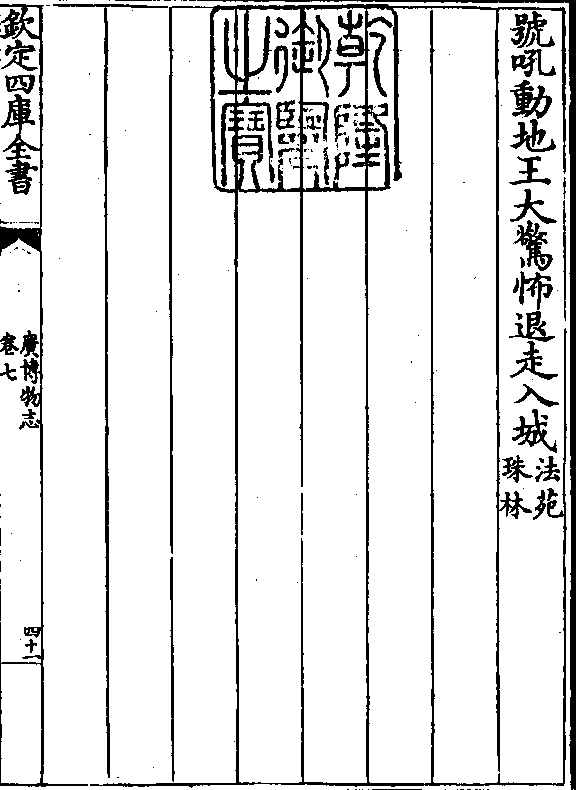 號吼動地王大驚怖退走入城法苑
珠林
乾隆
御覽
之寶
欽定四庫全書
廣博物志
卷七
四十一